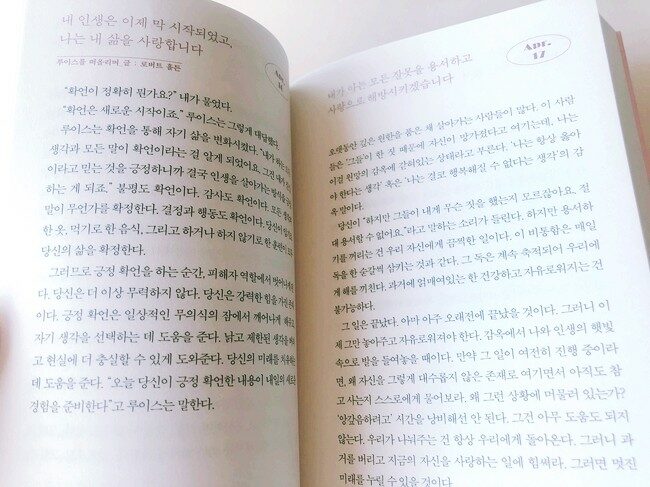 내 인생은 이제 막 시작되었고,
나는 내 삶을 사랑합니다
루이스를 떠올리며, 글 : 로버트 홀든
APR.
“확언이 정확히 뭔가요?” 내가 물었다.
“확언은 새로운 시작이죠.” 루이스는 그렇게 대답했다.
루이스는 확언을 통해 자기 삶을 변화시켰다. “내가 하는
생각과 모든 말이 확언이라는 걸 알게 되었어요. 그건
이라고 믿는 것을 긍정하니까 결국 인생을 살아가는 방식을
하는 게 되죠.” 불평도 확언이다. 감사도 확언이다. 모든
말이 무언가를 확정한다. 결정과 행동도 확언이다. 당신이
한 옷, 먹기로 한 음식, 그리고 하거나 하지 않기로 한
당신의 삶을 확정한다.
그러므로 긍정 확언을 하는 순간, 피해자 역할에서 벗어나게
다. 당신은 더 이상 무력하지 않다. 당신은 강력한 힘을 가진
이다. 긍정 확언은 일상적인 무의식의 잠에서 깨어나게
자기 생각을 선택하는 데 도움을 준다. 낡고 제한된 생각을
고 현실에 더 충실할 수 있게 도와준다. 당신의 미래를
데 도움을 준다. “오늘 당신이 긍정 확언한 내용이 내일의 새로운
경험을 준비한다”고 루이스는 말한다.
APR.
17
내가 아는 모든 잘못을 용서하고
사랑으로 해방시키겠습니다
오랫동안 깊은 원한을 품은 채 살아가는 사람들이 많다. 이 사람
들은 ‘그들’이 한 짓 때문에 자신이 망가졌다고 여기는데, 나는
이걸 원망의 감옥에 갇혀있는 상태라고 부른다. ‘나는 항상 옳아
야 한다는 생각’ 혹은 ‘나는 결코 행복해질 수 없다는 생각’의 감
옥 말이다.
당신이 “하지만 그들이 내게 무슨 짓을 했는지 모르잖아요. 절
대 용서할 수 없어요.”라고 말하는 소리가 들린다. 하지만 용서하
기를 꺼리는 건 우리 자신에게 끔찍한 일이다. 이 비통함은 매일
독을 한 숟갈씩 삼키는 것과 같다. 그 독은 계속 축적되어 우리에
게 해를 끼친다. 과거에 얽매여있는 한 건강하고 자유로워지는 건
불가능하다.
그 일은 끝났다. 아마 아주 오래전에 끝났을 것이다. 그러니 이
제 그만 놓아주고 자유로워져야 한다. 감옥에서 나와 인생의 햇빛
속으로 발을 들여놓을 때이다. 만약 그 일이 여전히 진행 중이라
면, 왜 자신을 그렇게 대수롭지 않은 존재로 여기면서 아직도 참
고 사는지 스스로에게 물어보라. 왜 그런 상황에 머물러 있는가?
‘앙갚음하려고’ 시간을 낭비해선 안 된다. 그건 아무 도움도 되지
않는다. 우리가 나눠주는 건 항상 우리에게 돌아온다. 그러니 과
거를 버리고 지금의 자신을 사랑하는 일에 힘써라. 그러면 멋진
미래를 누릴 수 있을 것이다.